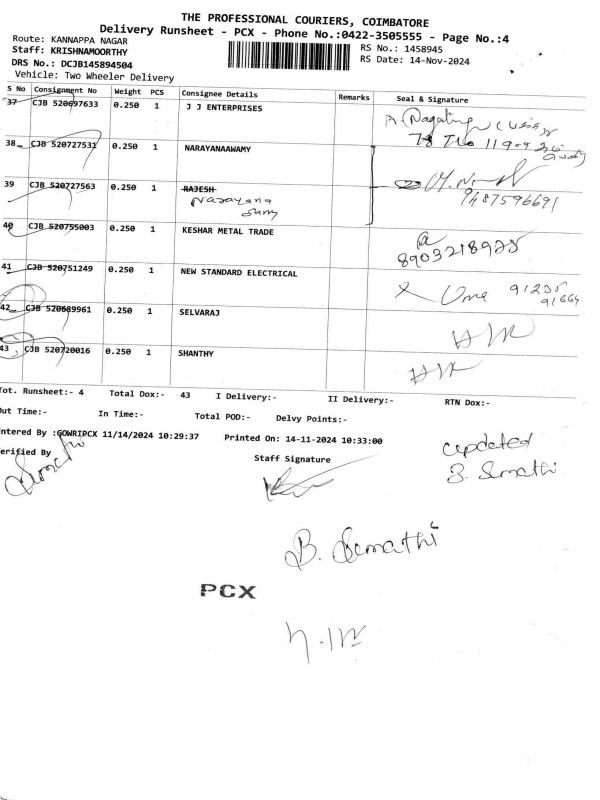 THE PROFESSIONAL COURIERS, COIMBATORE
Delivery Runsheet - PCX - Phone No.:0422-3505555 - Page No.:4
Route: KANNAPPA NAGAR
RS No.: 1458945
Staff: KRISHNAMOORTHY
RS Date: 14-Nov-2024
DRS No.: DCJB145894504
Vehicle: Two Wheeler Delivery
S No Consignment No Weight PCS Consignee Details Remarks Seal & Signature
37 CJB 520697633 0.250 1 J J ENTERPRISES
38 CJB 520727531 0.250 1 NARAYANAAWAMY
39 CJB 520727563 0.250 1 RAJESH
Narayana
Samy
9487596691
40 CJB 520755003 0.250 1 KESHAR METAL TRADE
8903218925
41 CJB 520751249 0.250 1 NEW STANDARD ELECTRICAL
91235
91664
42 CJB 520689961 0.250 1 SELVARAJ
43 CJB 520720016 0.250 1 SHANTHY
Tot. Runsheet:- 4 Total Dox:- 43 I Delivery:- II Delivery:- RTN Dox:-
Out Time:- In Time:- Total POD:- Delvy Points:-
Entered By :GOWRIPCX 11/14/2024 10:29:37 Printed On: 14-11-2024 10:33:00
Verified By
Staff Signature
updated
B. Sumathi
B. Sumathi
PCX